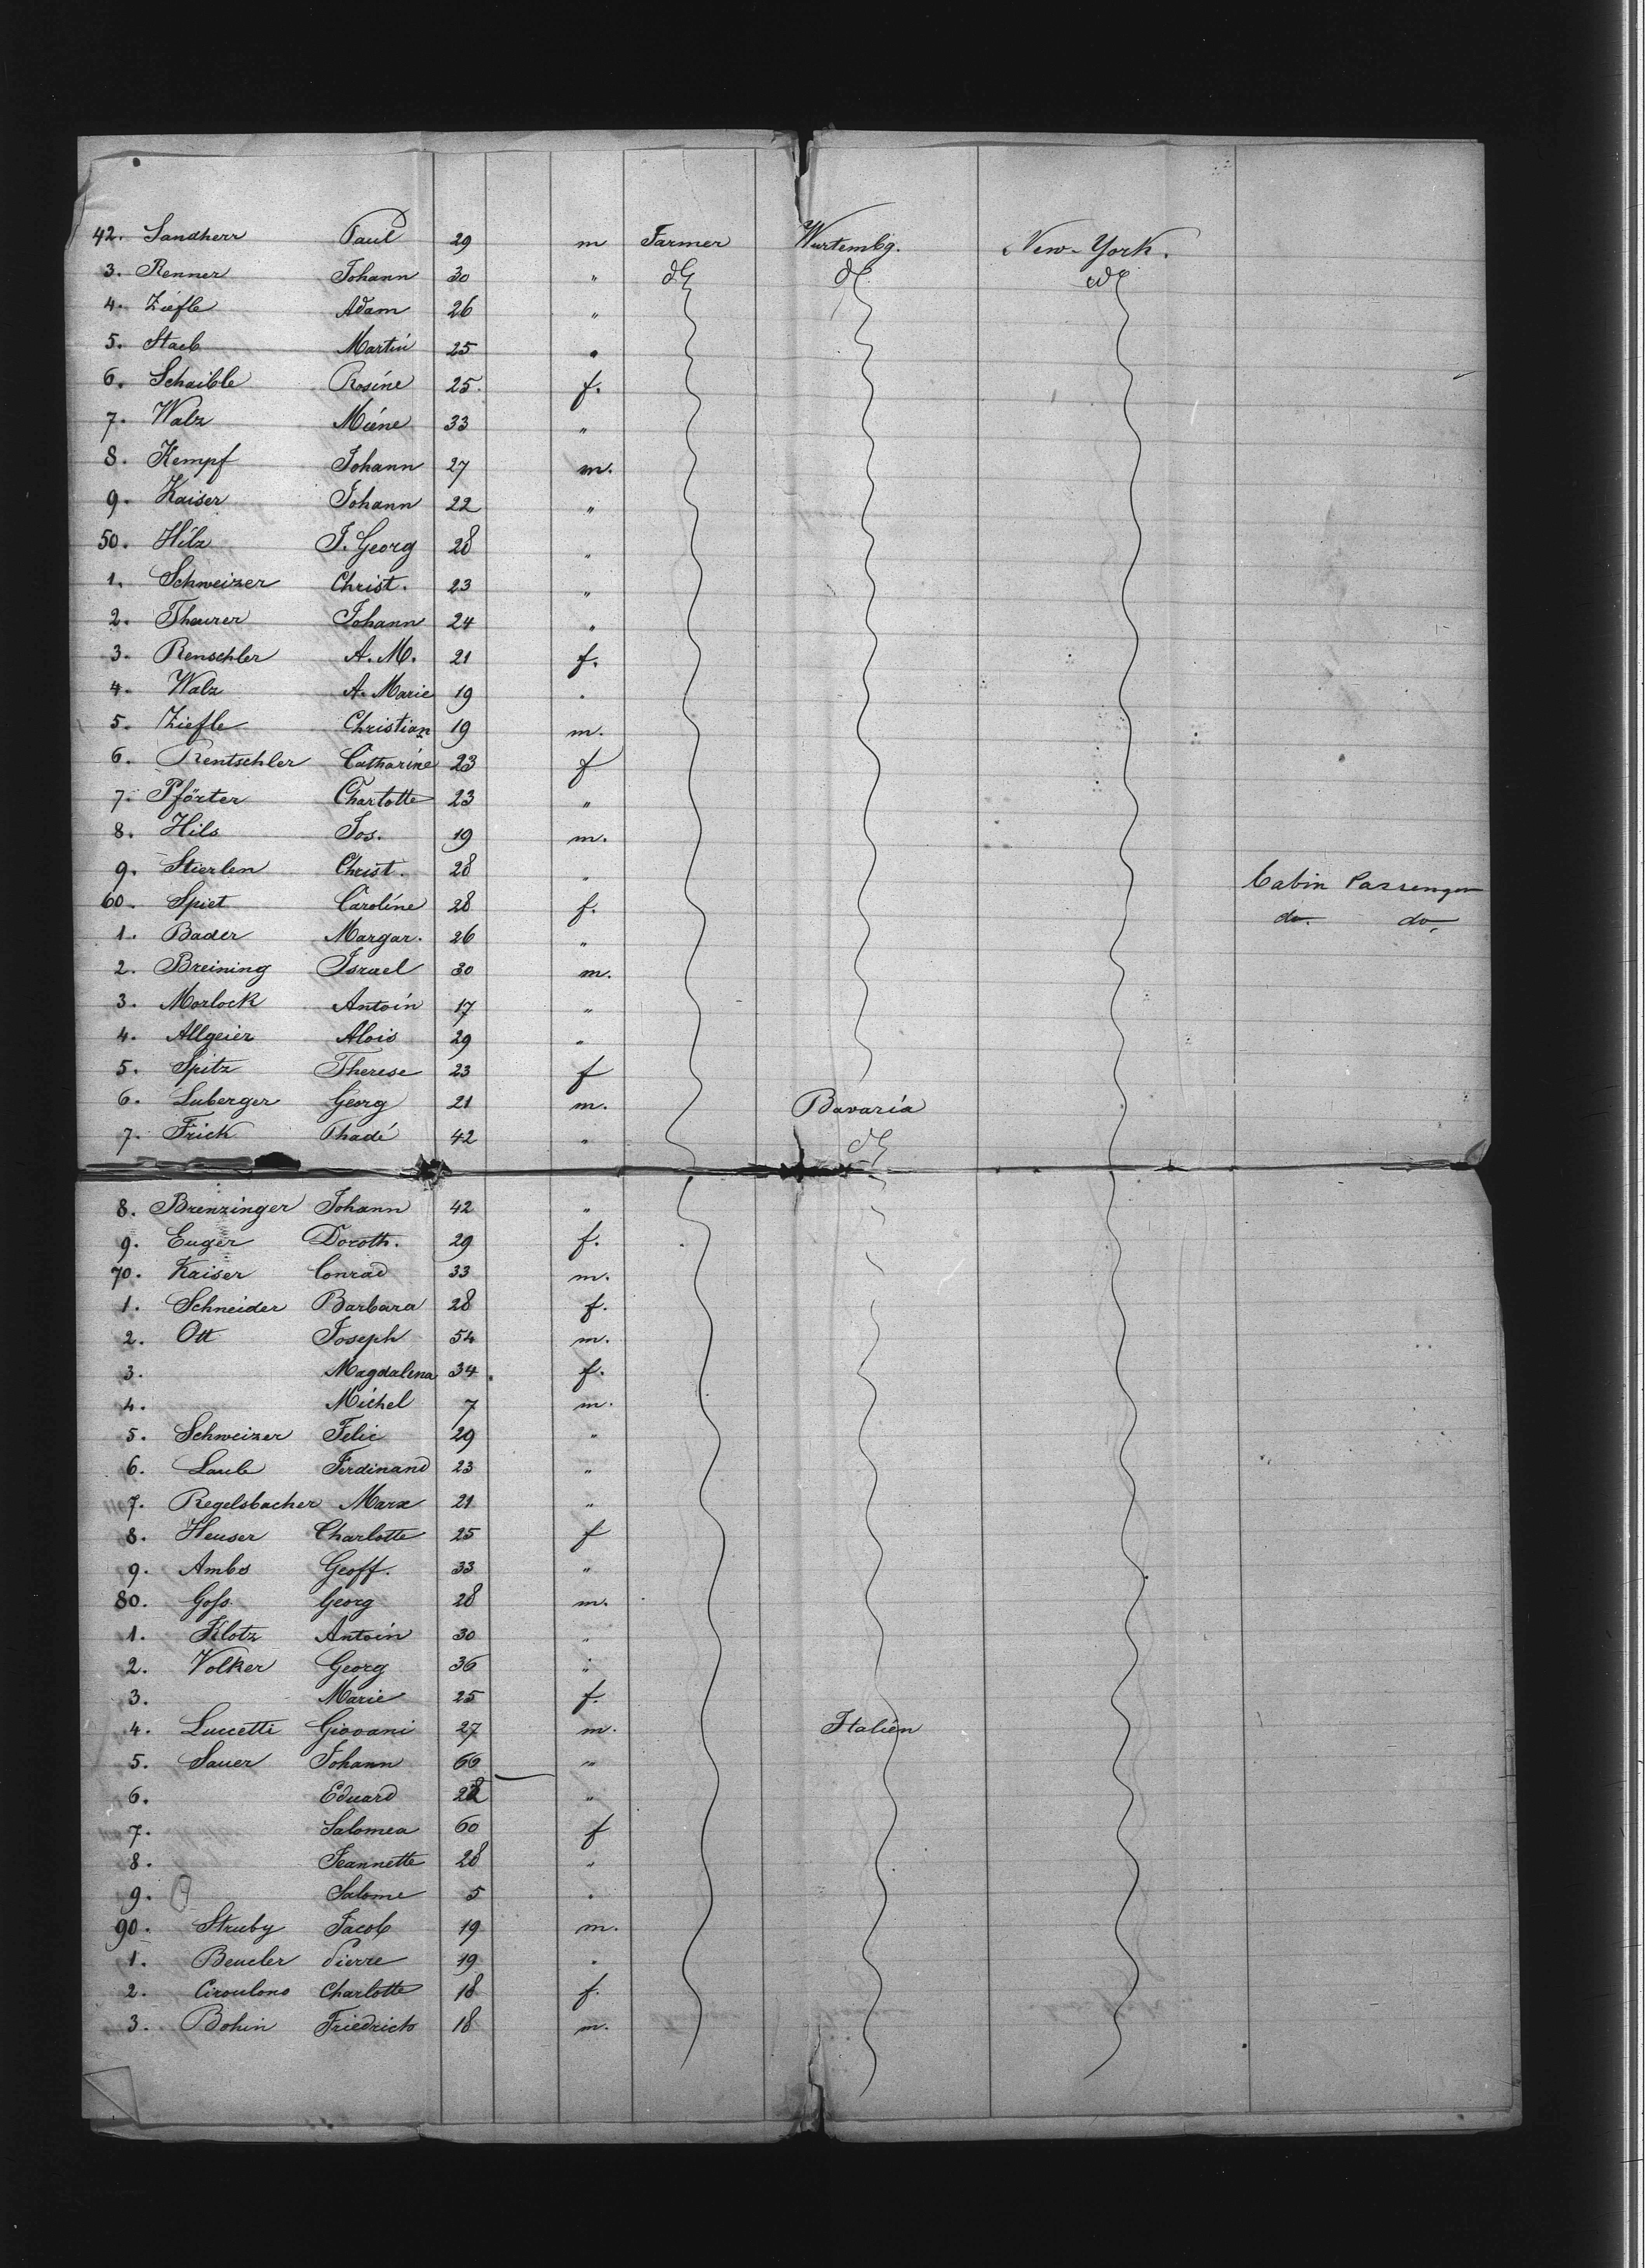 42. Sandherr Paul 29 m Farmer Wurtembg. New-York.
3. Renner Johann 30 " do do do
4. Ziefle Adam 26 "
5. Staeb Martin 25 "
6. Schaible Rosine 25 f.
7. Walz Miene 33 "
8. Kempf Johann 27 m.
9. Kaiser Johann 22 "
50. Hilz J. Georg 28 "
1. Schweizer Christ. 23 "
2. Theurer Johann 24 "
3. Renschler A. M. 21 f.
4. Walz A. Marie 19 "
5. Ziefle Christian 19 m.
6. Rentschler Catharine 23 f
7. Pförter Charlotte 23 "
8. Hils Jos. 19 m.
9. Stierlen Christ. 28 " Cabin Passenger
60. Spiet Caroline 28 f. do. do.
1. Bader Margar. 26 "
2. Breining Israel 30 m.
3. Morlock Antoin 17 "
4. Allgeier Alois 29 "
5. Spitz Therese 23 f
6. Luberger Georg 21 m. Bavaria
7. Frick Thadé 42 " do
8. Brenzinger Johann 42 "
9. Euger Doroth. 29 f.
70. Kaiser Conrad 33 m.
1. Schneider Barbara 28 f.
2. Ott Joseph 54 m.
3. Magdalena 34 f.
4. Michel 7 m.
5. Schweizer Felic 29 "
6. Laule Ferdinand 23 "
7. Regelsbacher Marx 21 "
8. Heuser Charlotte 25 f
9. Ambs Geoff. 33 "
80. Goss Georg 28 m.
1. Klotz Antoin 30 "
2. Volker Georg 36 "
3. Marie 25 f.
4. Luccetti Giovani 27 m. Italien
5. Sauer Johann 66 "
6. Eduard "
7. Salomea 60 f
8. Jeannette 28 "
9. Salome 5 "
90. Struby Jacob 19 m.
1. Beucler Pierre 19 "
2. Charlotte 18 f.
3. Bohin Friedrich 18 m.